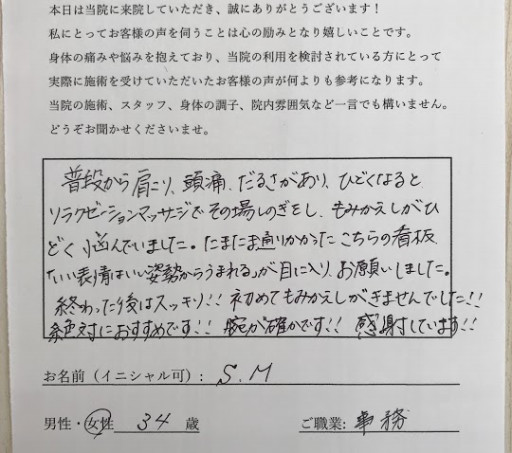 本日は当院に来院していただき、誠にありがとうございます！
私にとってお客様の声を伺うことは心の励みとなり嬉しいことです。
身体の痛みや悩みを抱えており、当院の利用を検討されている方にとって
実際に施術を受けていただいたお客様の声が何よりも参考になります。
当院の施術、スタッフ、身体の調子、院内雰囲気など一言でも構いません。
どうぞお聞かせくださいませ。
普段から肩こり、頭痛、だるさがあり、ひどくなると
リラクゼーションマッサージでその場しのぎをし、もみかえしがひ
どく悩んでいました。たまたま通りかかったこちらの看板
「いい表情はいい姿勢からうまれる」が目に入り、お願いしました。
終わった後はスッキリ!! 初めてもみかえしがきませんでした!!
絶対におすすめです!! 腕が確かです!! 感謝しています!!
お名前（イニシャル可）: S.M
男性・女性 34 歳 ご職業: 事務